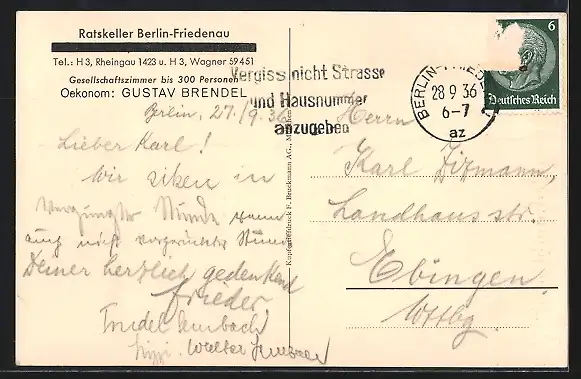 Ratskeller Berlin-Friedenau
Tel.: H 3, Rheingau 1423 u. H 3, Wagner 59451
Gesellschaftszimmer bis 300 Personen
Oekonom: GUSTAV BRENDEL
Vergiss nicht Strasse
und Hausnummer
anzugeben
BERLIN-FRIEDENAU
28 9 36
6-7
az
6
Deutsches Reich
Berlin, 27./9.36
Lieber Karl!
Wir sitzen in
vergnügter Stunde
auch nicht vorgerückter Stunde
Deiner herzlich gedenkend
Frieder
Walter
Kupfertiefdruck F. Bruckmann AG., München
Herrn
Karl
Landhausstr.
Ebingen
Wttbg.